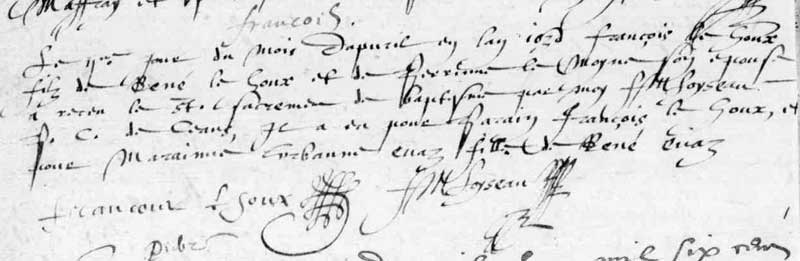 françois.
Le jour du mois dapuril en lan françois le houx
filz de René le houx et de Perrinne le Moyne son epouse
a receu le st. sacremen de baptesme par moy ffM loyseau
P. C. de Ceans, Il a eu pour Parain françois le houx, et
pour Marainne Urbanne euaz fille de René euaz
francour l houx ffM loyseau
mil six cen